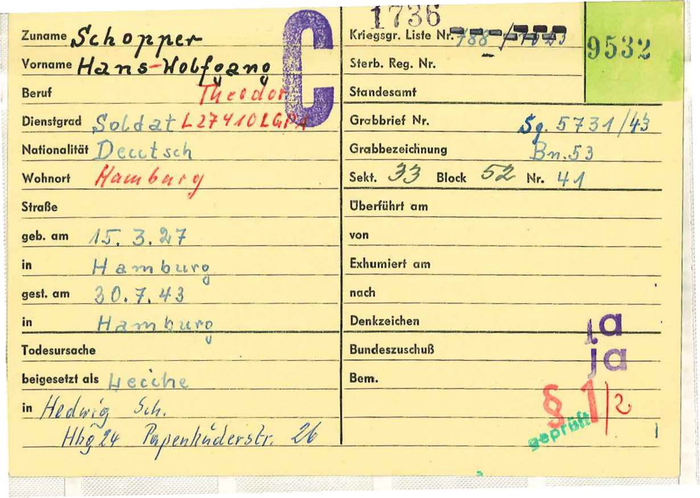 1736
Zuname Schopper
Vorname Hans-Wolfgang
Theodor
Beruf
Dienstgrad Soldat L27410LGPA
Nationalität Deutsch
Wohnort Hamburg
Straße
geb. am 15.3.27
in Hamburg
gest. am 30.7.43
in Hamburg
Todesursache
beigesetzt als Leiche
in Hedwig Sch.
Hbg 24 Papenhuderstr. 26
C
Kriegsgr. Liste Nr.
Sterb. Reg. Nr. -
Standesamt
9532
Grabbrief Nr. Sg. 5731/43
Grabbezeichnung Bn. 53
Sekt. 33 Block 52 Nr. 41
Überführt am
von
Exhumiert am
nach
Denkzeichen ja
Bundeszuschuß ja
Bem.
§ 1/2
geprüft